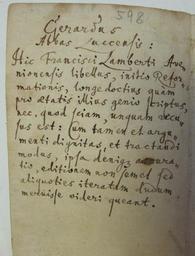 598
Gerardus
Abbas Luccensis:
Hic Francisci Lamberti Ave-
nionensis libellus, initio Refor-
mationis, longe doctius quam
pro ætatis illius genio scriptus,
nec, quod sciam, unquam decu-
sus est: Cum tamen et argu-
menti dignitas, et tractandi
modus, ipsa denique accura-
tio, editionem non semel sed
aliquoties iteratam dudum
meruisse videri queant.